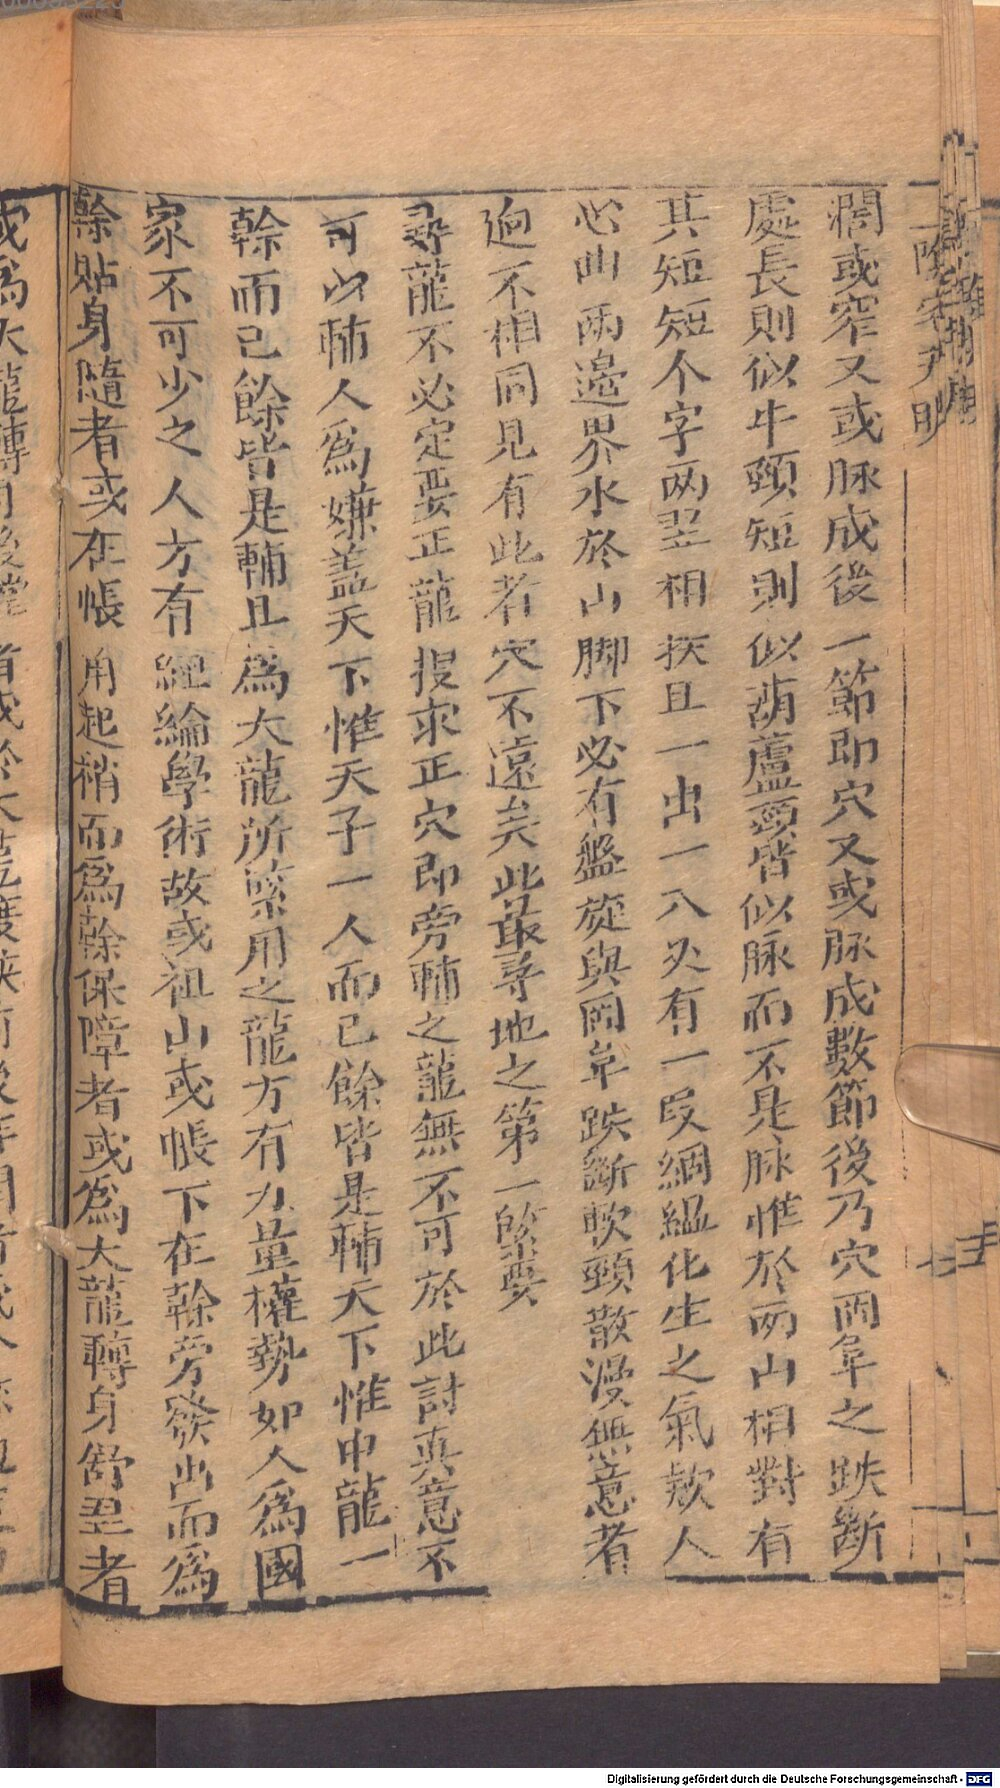 濶或窄又或脉成後一節即穴又或脉成數節後乃穴罔阜之跌斷
處長則似牛頸短則似葫蘆頭皆似脉而不是脉惟於両山相對有
其短短个字两翌相挾且一出一入必有一段綱緼化生之氣欵人
心曲两邉界水於山脚下必有盤旋與罔阜跌斷軟頸散漫無意者
逈不相同見有此者穴不遠矣此最尋地之第一緊要
尋龍不必定要正龍捜求正穴即旁輔之龍無不可於此討真意不
可以輔人爲嫌盖天下惟天子一人而已餘皆是輔天下惟中龍一
幹而已餘皆是輔且爲大龍所緊用之龍方有力量權勢如人爲國
家不可少之人方有經綸學術故或祖山或帳下在幹旁發出而爲
幹貼身隨者或在帳角起稍而爲幹保障者或爲大龍轉身舒翌者
或爲大龍轉
七
Digitalisierung gefördert durch die Deutsche Forschungsgemeinschaft - DFG